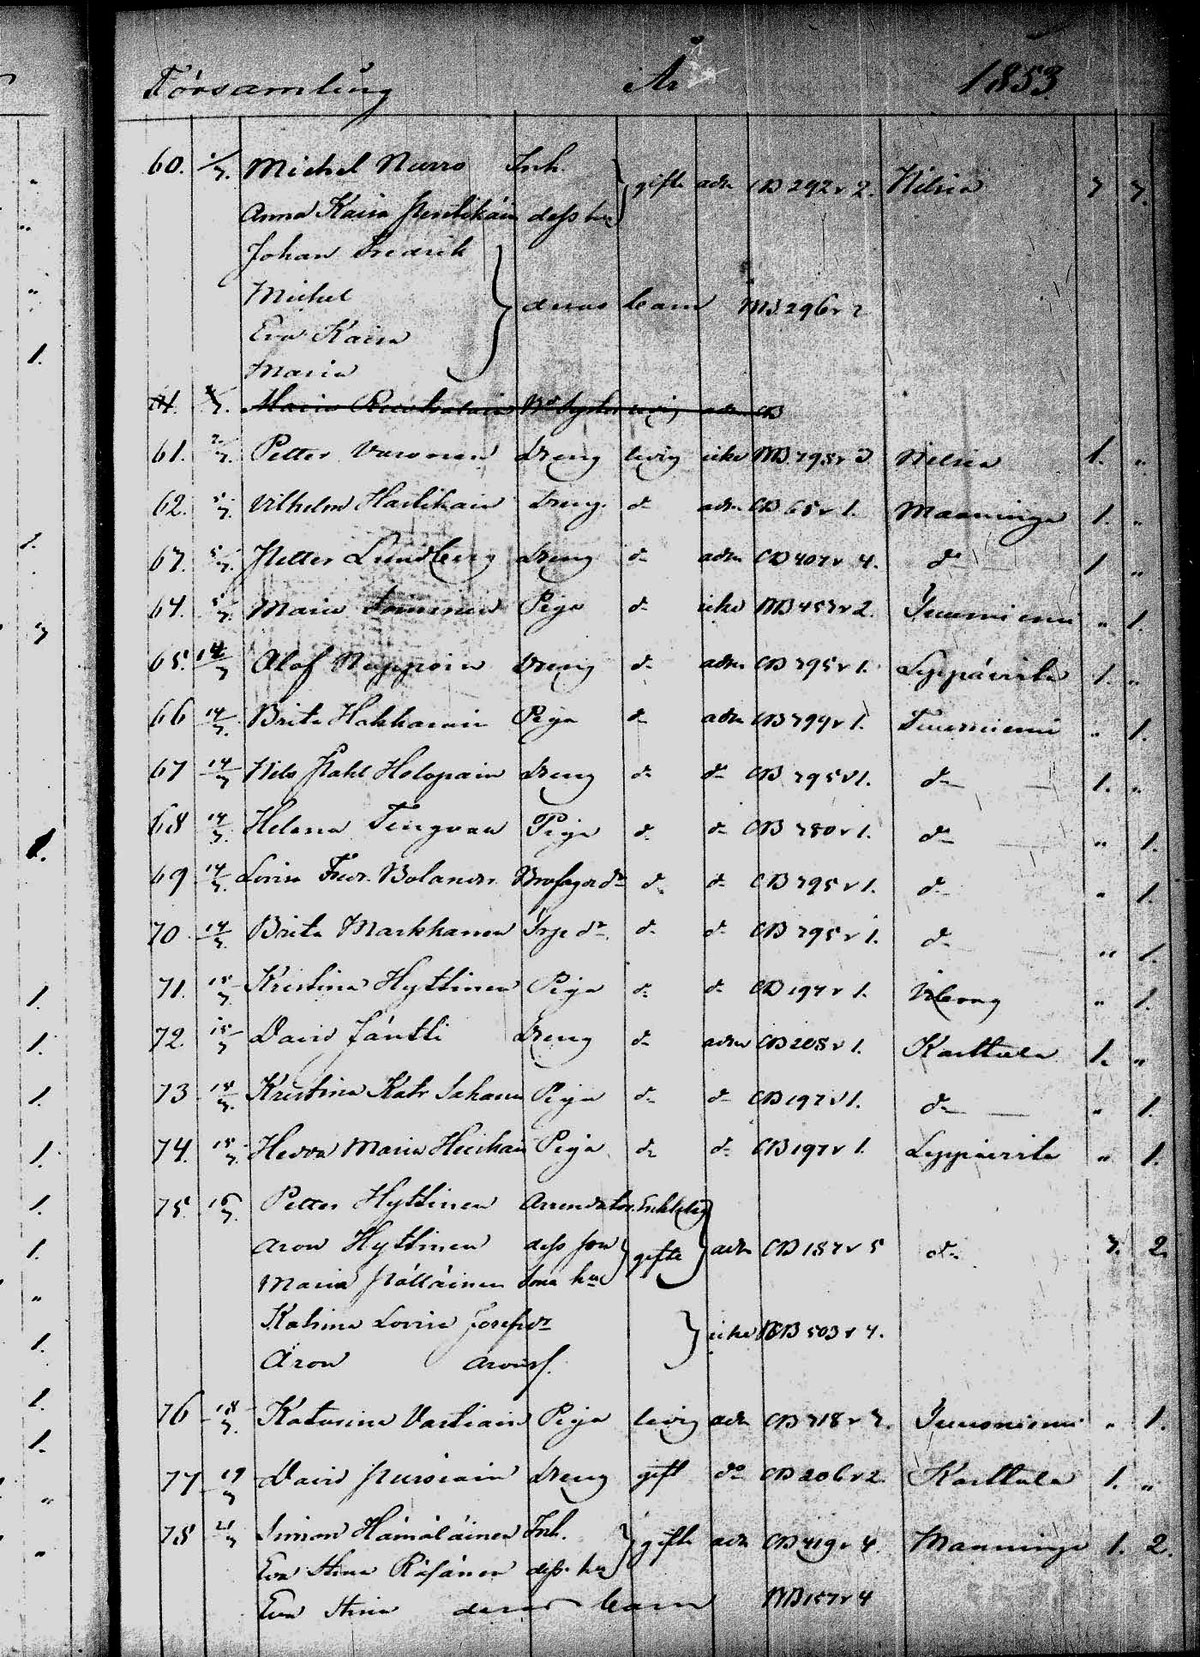 Församling År 1853
60. 1/3. Michel Nurro Inh. gifte adm CB 292 v 2. Nilsia 3 3.
Anna Kaisa Pentikäin dess hu
Johan Fredrik
Michel deras barn BB 296 v 2
Eva Kaisa
Maria
Maria
61. 2/3. Petter Varonen Dreng ledig icke BB 398 v 3 Nilsia 1. "
62. 5/3. Vilhelm Hartikain Dreng d:o adm CB 65 v 1. Maaninga 1. "
63. 5/3. Petter Lundberg Dreng d:o adm CB 407 v 4. d:o 1 "
64. 5/3. Maria Piga d:o icke BB 453 v 2. Tuusniemi " 1.
65. 14/3 Olof Reppoin Dreng d:o adm CB 395 v 1. Leppävirta 1. "
66 14/3. Brita Hakkarain Piga d:o adm CB 399 v 1. Tuusniemi " 1.
67 14/3 Nils Påhl Holopain Dreng d:o d:o CB 395 v 1. d:o 1. "
68 14/3. Helena Tengvan Piga d:o d:o CB 380 v 1. d:o " 1.
69 14/3. Lovisa Fredr. Bolander d:o d:o CB 395 v 1. d:o " 1.
70 14/3. Brita Markkanen d:o d:o CB 395 v 1. d:o " 1.
71. 15/3 Kristina Hyttinen Piga d:o d:o CB 197 v 1. Viborg " 1.
72. 15/3 David Jäntti Dreng d:o adm CB 208 v 1. Karttula 1. "
73 15/3. Kristina Katr Piga d:o d:o CB 197 v 1. d:o " 1.
74. 15/3. Hedda Maria Heiskain Piga d:o d:o CB 197 v 1. Leppävirta " 1.
75. 16/3. Petter Hyttinen Arrendator Enkling
Aron Hyttinen dess son gifte adm CB 187 v 5 d:o 3. 2.
Maria Pöllänen dens hu
Katrina Lovisa Josefsdr icke BB 503 v 4.
Aron Aronss.
76 18/3. Katarina Vartiain Piga ledig adm CB 318 v 3. Tuusniemi " 1.
77 19/3 David Pursiain Dreng gift d:o CB 206 v 2 Karttula 1. "
78 21/3 Simon Hämäläinen Inh. gifte adm CB 419 v 4. Maaninga 1. 2.
Eva Stina Räsänen dess hu
Eva Stina deras barn BB 157 v 4